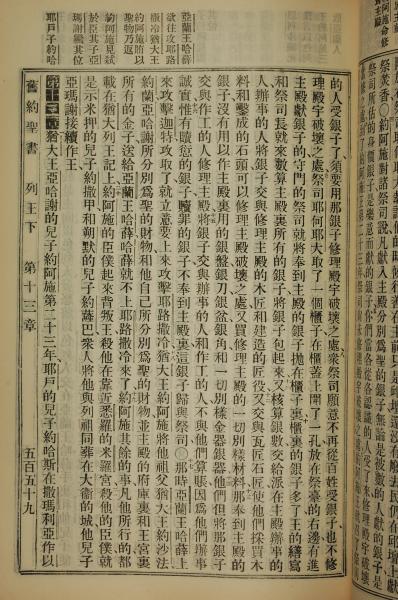 的人受銀子了須要用那銀子修理殿宇破壞之處衆祭司願意不再從百姓受銀子也不修
理殿宇破壞之處祭司耶何耶大取了一個櫃子在櫃蓋上開了一孔放在祭臺的右邊有進
主殿獻銀子的守門的祭司就將奉到主殿的銀子拋在櫃裏櫃裏的銀子多了王的繕寫
和祭司長就來數算主殿裏所有的銀子將銀子包起來又核算銀數交給派在主殿辦事的
人辦事的人將銀子交與修理主殿的木匠和建造的匠役又交與瓦匠石匠使他們採買木
料和鑿成的石頭可以修理主殿破壞之處又買修理主殿的一切別樣材料那奉到主殿的
銀子沒有用以作主殿裏用的銀盤銀刀銀盆銀角和一切別樣金器銀器他們但將那銀子
交與作工的人修理主殿將銀子交與辦事的人和作工的人不與他們算賬因爲他們辦事
誠實惟有贖愆的銀子贖罪的銀子不奉到主殿裏這銀子歸與祭司〇那時亞蘭王哈薛上
來攻擊迦特攻取了就立意要上來攻擊耶路撒冷猶大王約阿施將他祖父猶大王約沙法
約蘭亞哈謝所分別爲聖的財物和他自己所分別爲聖的財物並主殿的府庫裏和王宮裏
所有的金子送給亞蘭王哈薛哈薛就不上耶路撒冷來了約阿施其餘的事凡他所行的都
載在猶大列王記上約阿施的臣僕起來背叛王殺他在靠近悉羅的米羅宮殺他的臣僕就
是示米押的兒子約撒甲和朔默的兒子約薩巴衆人將他與列祖同葬在大衛的城他兒子
亞瑪謝接續作王
第十三章猶大王亞哈謝的兒子約阿施第二十三年耶戶的兒子約哈斯在撒瑪利亞作以
舊約聖書 列王下 第十三章 五百五十九
亞蘭王哈薛
欲往攻耶路
撒冷猶大王
約阿施將以
聖物乃返
約阿施見弒
於臣其子亞
瑪謝繼其位
耶戶子約哈